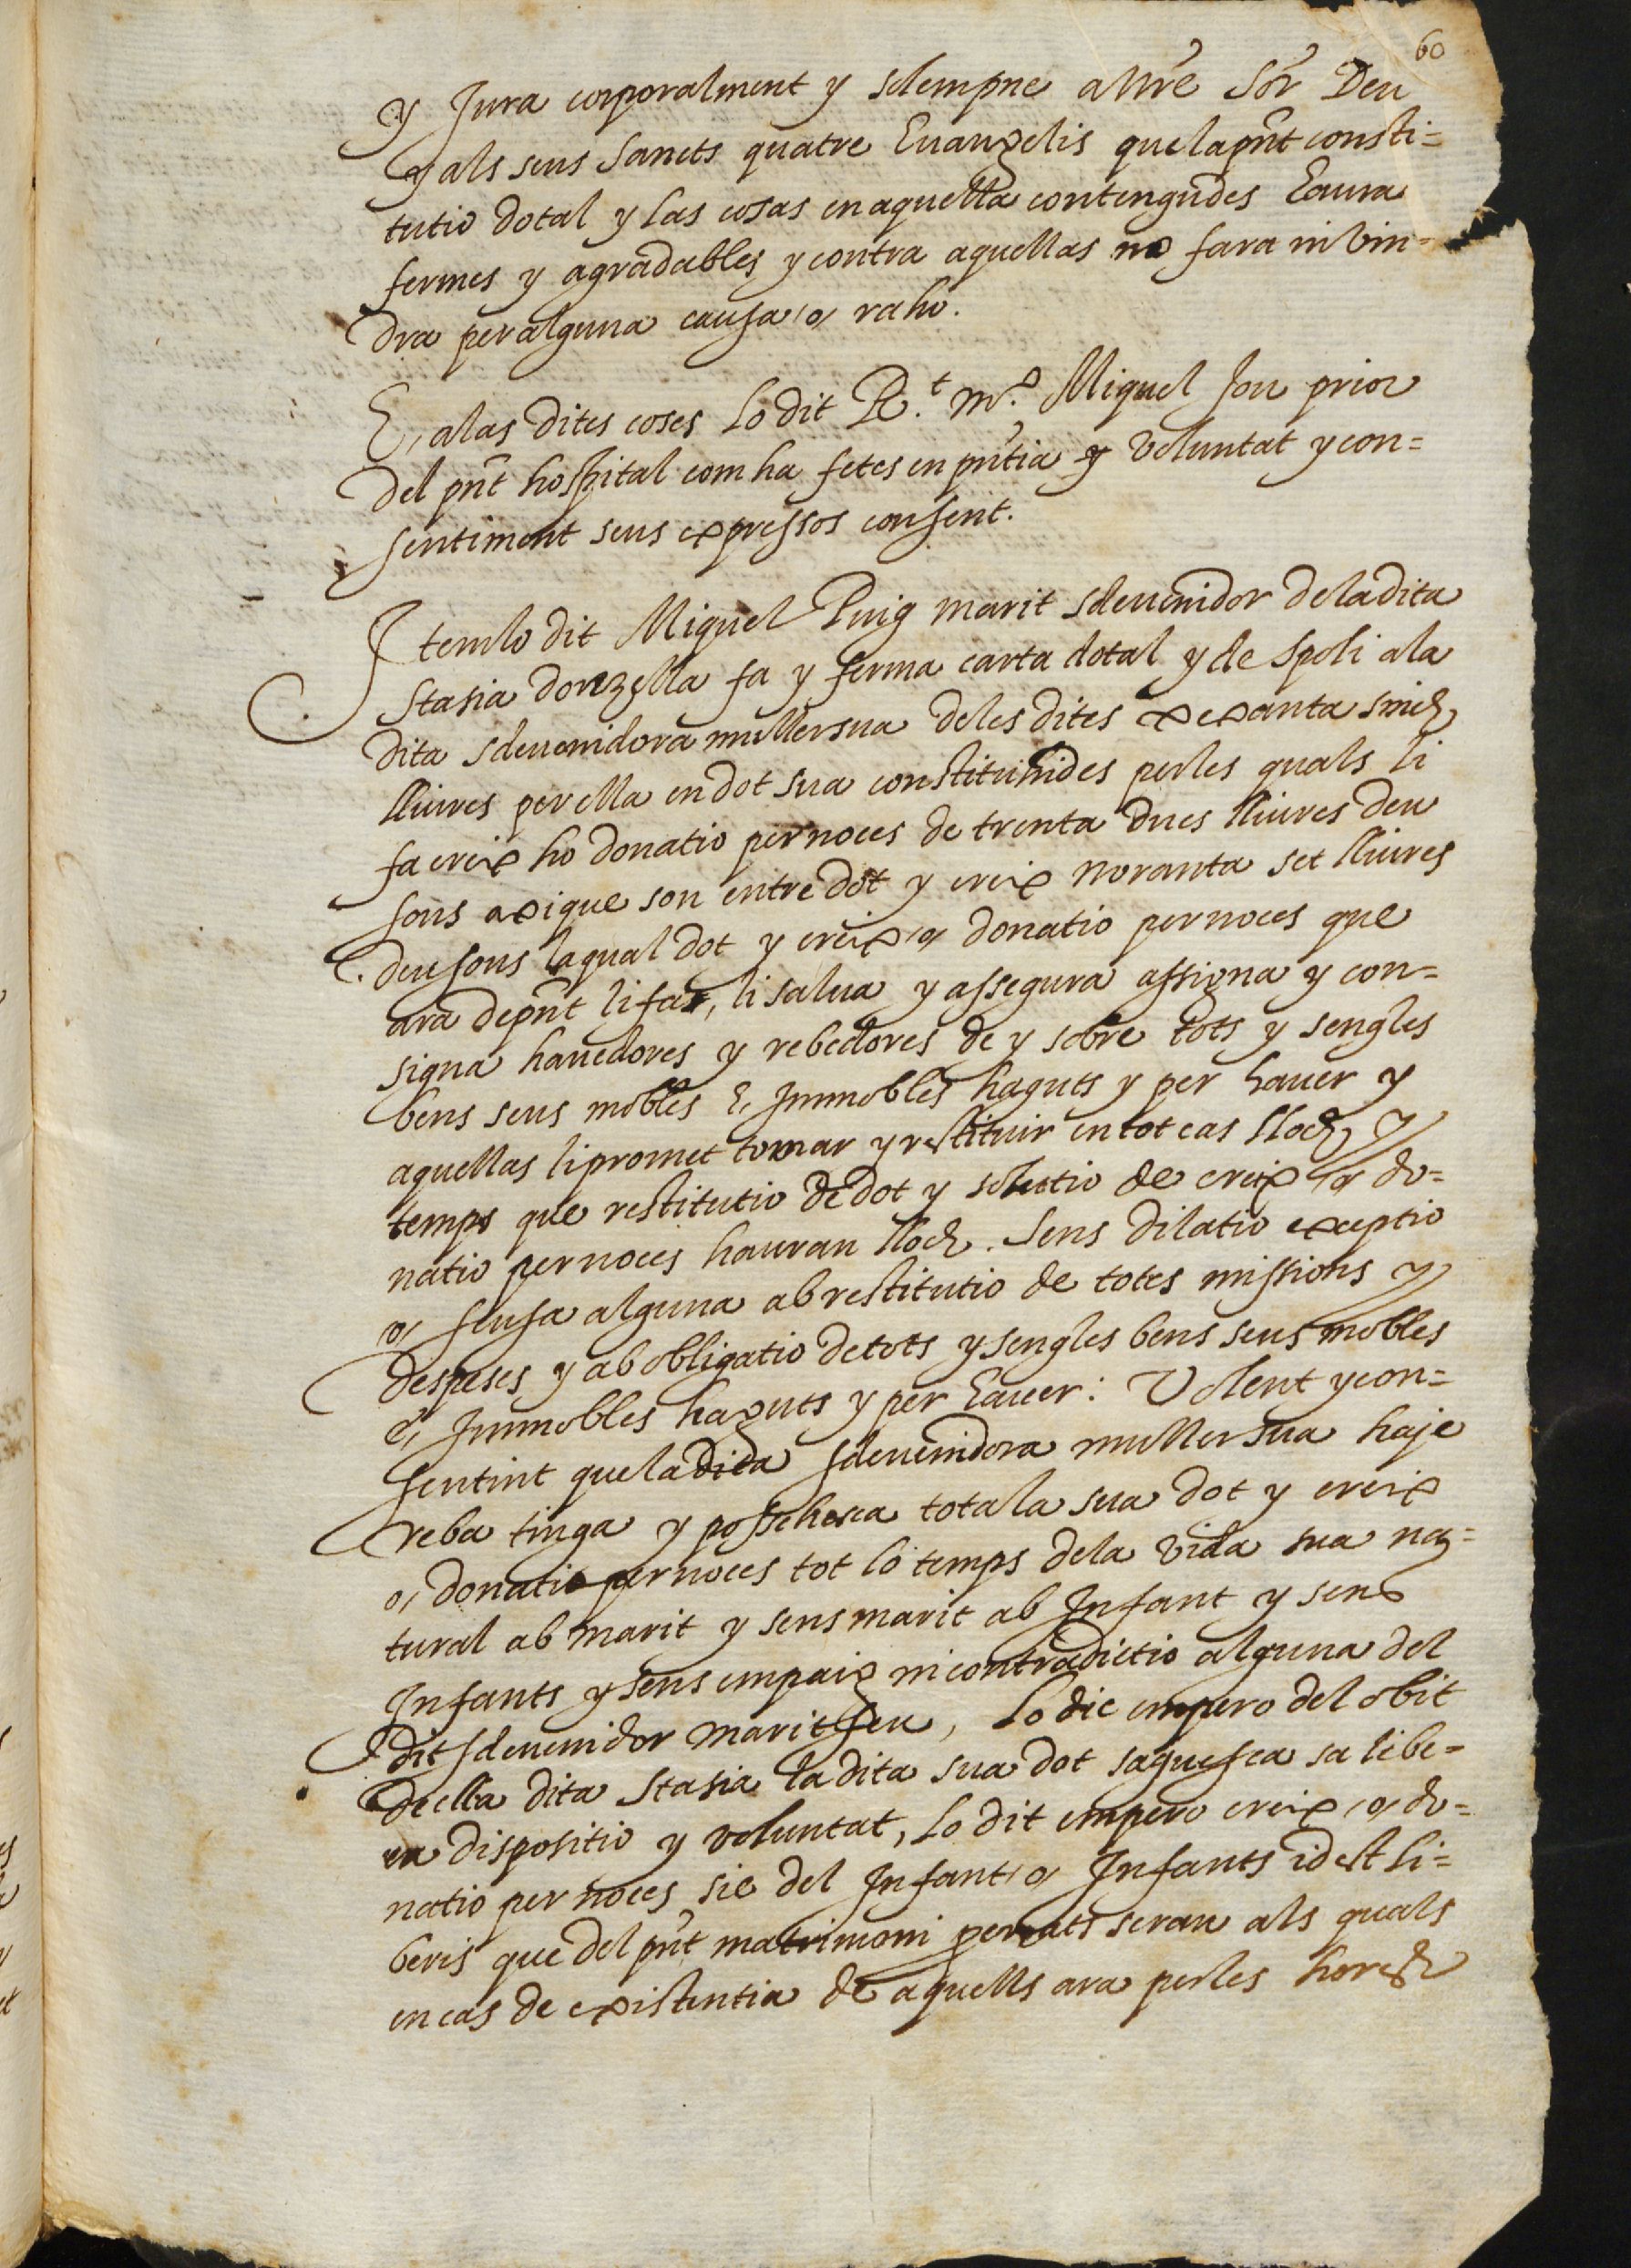 60
y Jura corporalment y solempne a nre Sor Deu
y als seus Sancts quatre Euangelis que la pnt consti=
tutio dotal y las cosas en aquella contengudes haura
fermes y agradables y contra aquellas no fara ni vin=
dra per alguna causa o, raho.
E, a las dites coses lo dit R.t m.o Miquel Jou prior
del pnt hospital com ha fetes en pntia y voluntat y con=
sentiment seus expressos consent.
Item lo dit Miquel Puig marit sdeuenidor de la dita
Stasia donzella fa y ferma carta dotal y de spoli a la
dita sdeuenidora muller sua de les dites xexanta sinch
lliures per ella en dot sua constituhides per les quals li
fa creix ho donatio per noces de trenta dues lliures deu
sous axique son entre dot y creix noranta set lliures
deu sous la qual dot y creix o, donatio per noces que
ara de pnt li fa, li salua y assegura assigna y con=
signa hauedores y rebedores de y sobre tots y sengles
bens seus mobles E, Immobles haguts y per hauer y
aquellas li promet tornar y restituir en tot cas lloch y
temps que restitutio de dot y solutio de creix o, do=
natio per noces hauran lloch. Sens dilatio exceptio
o, scusa alguna ab restitutio de totes missions y
despeses y ab obligatio de tots y sengles bens seus mobles
e, Immobles haguts y per hauer: Volent y con=
sentint que la dita sdeuenidora muller sua haje
reba tinga y possehesca tota la sua dot y creix
o, donatio per noces tot lo temps de la vida sua na=
tural ab marit y sens marit ab Infant y sens
Infants y sens empaix ni contradictio alguna del
dit sdeuenidor marit seu, Lo die empero del obit
de ella dita Stasia la dita sua dot saguesca sa libe=
ra dispositio y voluntat, Lo dit empero creix, o, do=
natio per noces sie del Infant o, Infants id est li=
beris que del pnt matrimoni procreats seran als quals
en cas de existentia de aquells ara per les hores